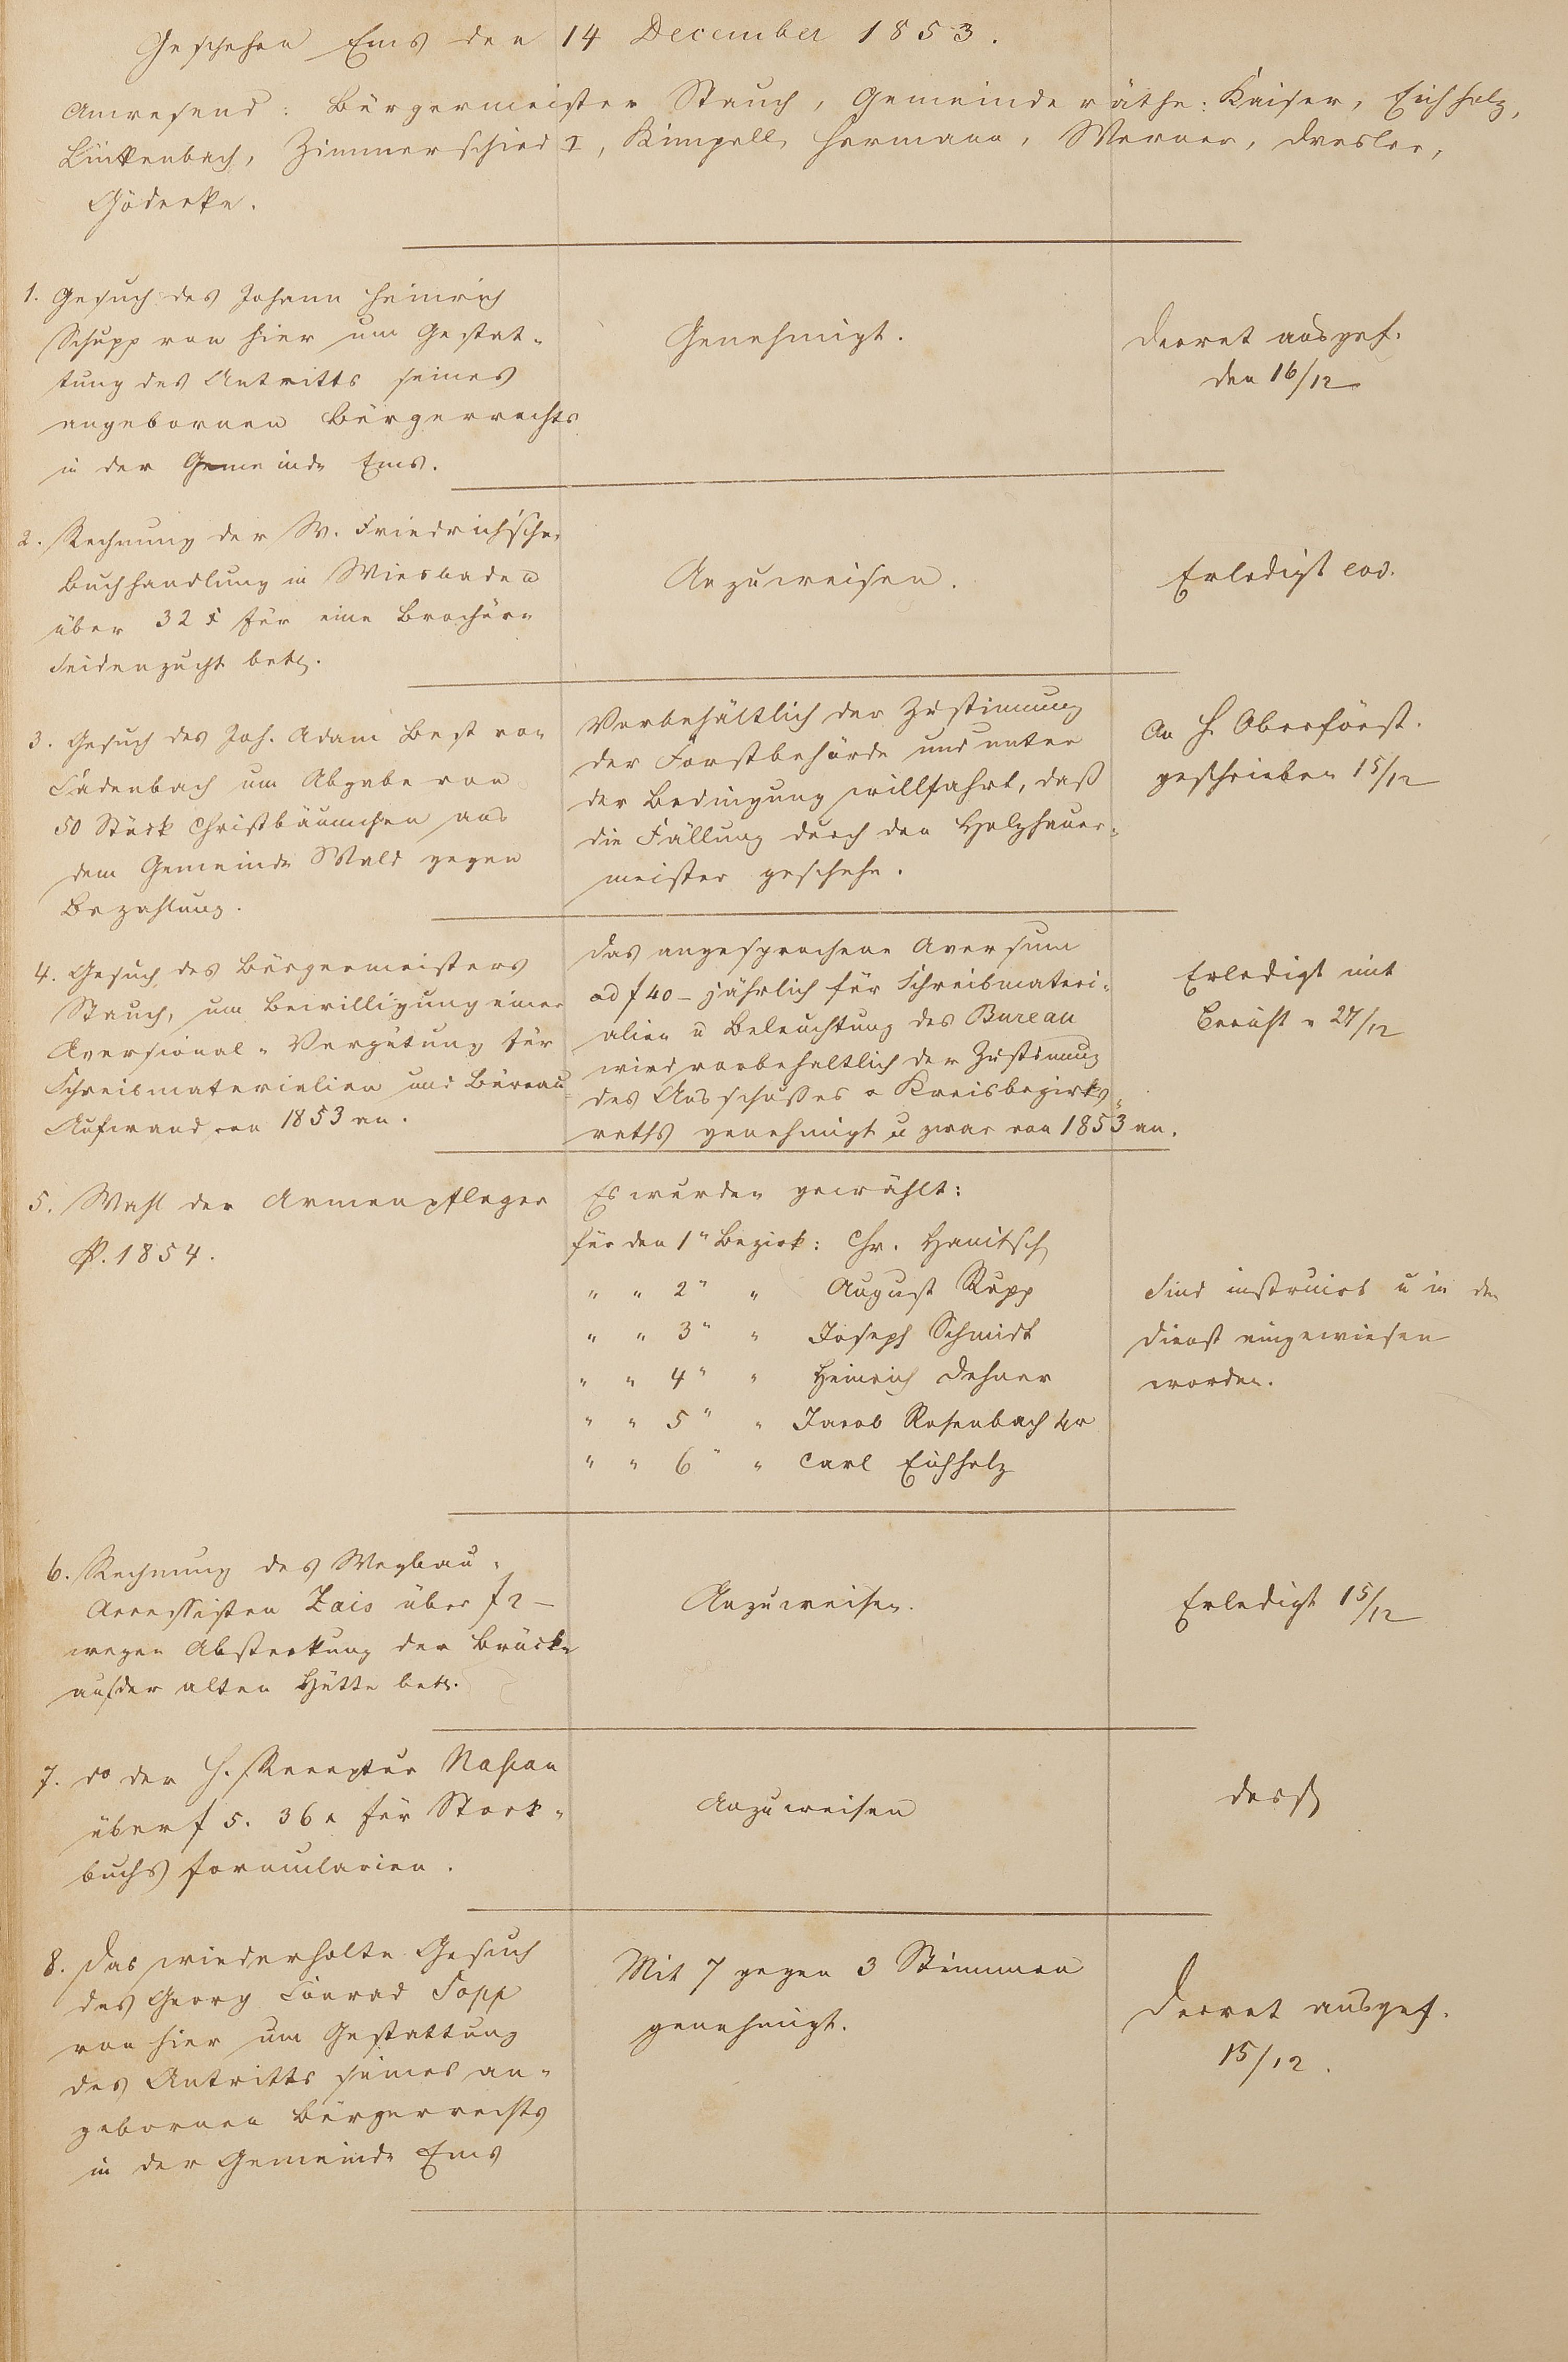 Geschehen Ems den 14 December 1853.
Anwesend: Bürgermeister Stauch, Gemeinderäthe: Kaiser, Eichholz,
Linkenbach, Zimmerschied I, Kimpell, Hermann, Werner, Dresler,
Gödecke.
1. Gesuch des Johann Heinrich
Schupp von hier um Gestat-
tung des Antritts seines
angebornen Bürgerrechts
in der Gemeinde Ems.
Genehmigt.
Decret ausgef.
den 16/12
2. Rechnung der W. Friedrich'schen
Buchhandlung in Wiesbaden
über 32 x für eine Brochüre
Seidenzucht betr.
Anzuweisen.
Erledigt eod.
3. Gesuch des Joh. Adam Best von
Fachbach um Abgabe von
50 Stück Christbäumchen aus
dem Gemeinde Wald gegen
Bezahlung.
Vorbehältlich der Zustimmung
der Forstbehörde und unter
der Bedingung willfahrt, daß
die Fällung durch den Holzhauer-
meister geschehe.
An H. Oberförst.
geschrieben 15/12
4. Gesuch des Bürgermeisters
Stauch, um Bewilligung einer
Aversional-Vergütung für
Schreibmaterialien und Büreau
Aufwand von 1853 an.
Das angesprochene Aversum
ad f 40 – jährlich für Schreibmateri-
alien u Beleuchtung des Bureau
wird vorbehaltlich der Zustimmung
des Ausschußes u Kreisbezirks-
raths genehmigt u zwar von 1853 an.
Erledigt mit
Bericht v 27/12
5. Wahl der Armenpfleger
p. 1854.
Es wurden gewählt:
für den 1" Bezirk: Chr. Hanitsch
" " 2" " August Rupp
" " 3" " Joseph Schmidt
" " 4" " Heinrich Dehner
" " 5" " Jacob Rosenbach
" " 6" " Carl Eichholz
Sind instruirt u in den
Dienst eingewiesen
worden.
6. Rechnung des Wegbau-
Accessisten Zais über f 2 –
wegen Absteckung der Brücke
auf der alten Hütte betr.
Anzuweisen.
Erledigt 15/12
7. do der H. Receptur Nassau
über f 5. 36 x für Stock-
buchs formularien.
Anzuweisen
8. Das wiederholte Gesuch
des Georg Conrad Sopp
von hier um Gestattung
des Antritts seines an-
gebornen Bürgerrechts
in der Gemeinde Ems
Mit 7 gegen 3 Stimmen
genehmigt.
Decret ausgef.
15/12.